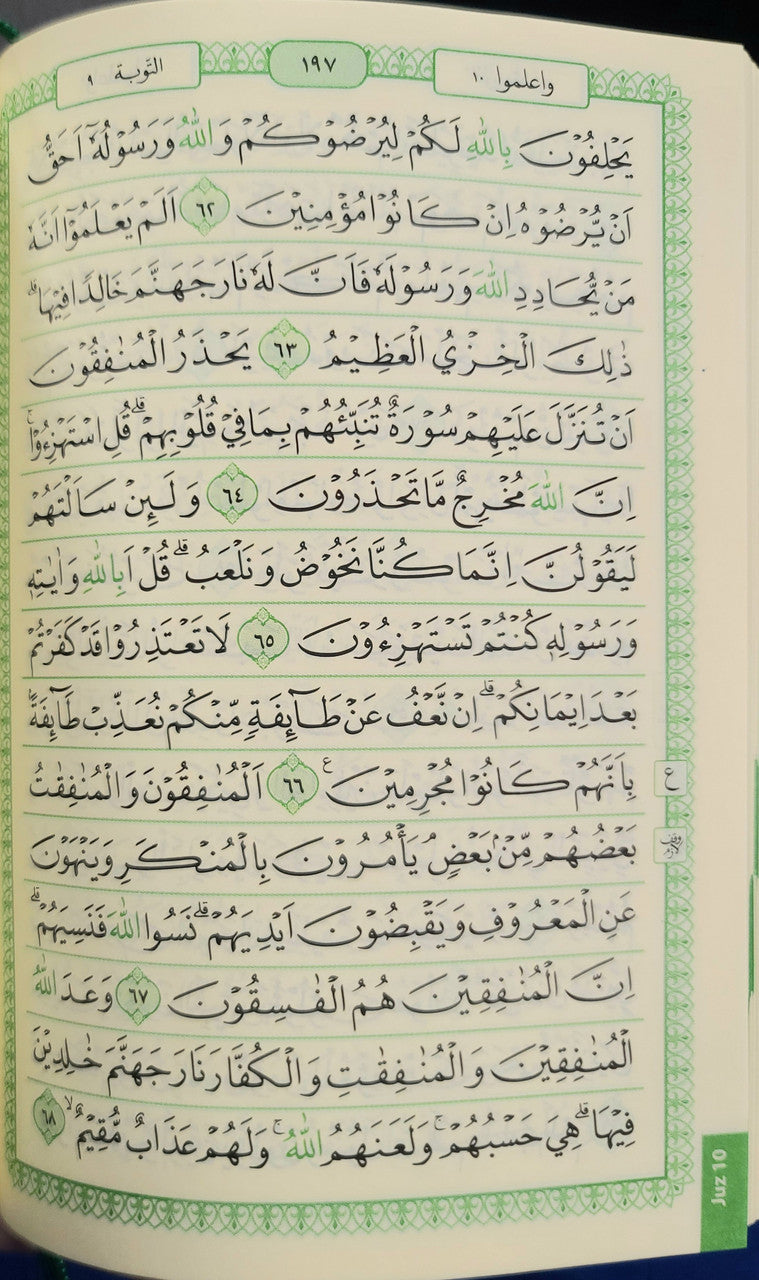 التوبة ٩
١٩٧
واعلموا ١٠
يَحْلِفُوْنَ بِاللّٰهِ لَكُمْ لِيُرْضُوْكُمْ وَاللّٰهُ وَرَسُوْلُهٗٓ اَحَقُّ
اَنْ يُّرْضُوْهُ اِنْ كَانُوْا مُؤْمِنِيْنَ ٦٢ اَلَمْ يَعْلَمُوْٓا اَنَّهٗ
مَنْ يُّحَادِدِ اللّٰهَ وَرَسُوْلَهٗ فَاَنَّ لَهٗ نَارَ جَهَنَّمَ خَالِدًا فِيْهَاۗ
ذٰلِكَ الْخِزْيُ الْعَظِيْمُ ٦٣ يَحْذَرُ الْمُنٰفِقُوْنَ
اَنْ تُنَزَّلَ عَلَيْهِمْ سُوْرَةٌ تُنَبِّئُهُمْ بِمَا فِيْ قُلُوْبِهِمْۗ قُلِ اسْتَهْزِءُوْاۚ
اِنَّ اللّٰهَ مُخْرِجٌ مَّا تَحْذَرُوْنَ ٦٤ وَلَىِٕنْ سَاَلْتَهُمْ
لَيَقُوْلُنَّ اِنَّمَا كُنَّا نَخُوْضُ وَنَلْعَبُۗ قُلْ اَبِاللّٰهِ وَاٰيٰتِهٖ
وَرَسُوْلِهٖ كُنْتُمْ تَسْتَهْزِءُوْنَ ٦٥ لَا تَعْتَذِرُوْا قَدْ كَفَرْتُمْ
بَعْدَ اِيْمَانِكُمْۗ اِنْ نَّعْفُ عَنْ طَاۤىِٕفَةٍ مِّنْكُمْ نُعَذِّبْ طَاۤىِٕفَةًۢ
بِاَنَّهُمْ كَانُوْا مُجْرِمِيْنَ ࣖ ٦٦ اَلْمُنٰفِقُوْنَ وَالْمُنٰفِقٰتُ
بَعْضُهُمْ مِّنْۢ بَعْضٍ يَأْمُرُوْنَ بِالْمُنْكَرِ وَيَنْهَوْنَ
عَنِ الْمَعْرُوْفِ وَيَقْبِضُوْنَ اَيْدِيَهُمْۗ نَسُوا اللّٰهَ فَنَسِيَهُمْۗ
اِنَّ الْمُنٰفِقِيْنَ هُمُ الْفٰسِقُوْنَ ٦٧ وَعَدَ اللّٰهُ
الْمُنٰفِقِيْنَ وَالْمُنٰفِقٰتِ وَالْكُفَّارَ نَارَ جَهَنَّمَ خٰلِدِيْنَ
فِيْهَاۗ هِيَ حَسْبُهُمْۚ وَلَعَنَهُمُ اللّٰهُۚ وَلَهُمْ عَذَابٌ مُّقِيْمٌۙ ٦٨
ع
Juz 10